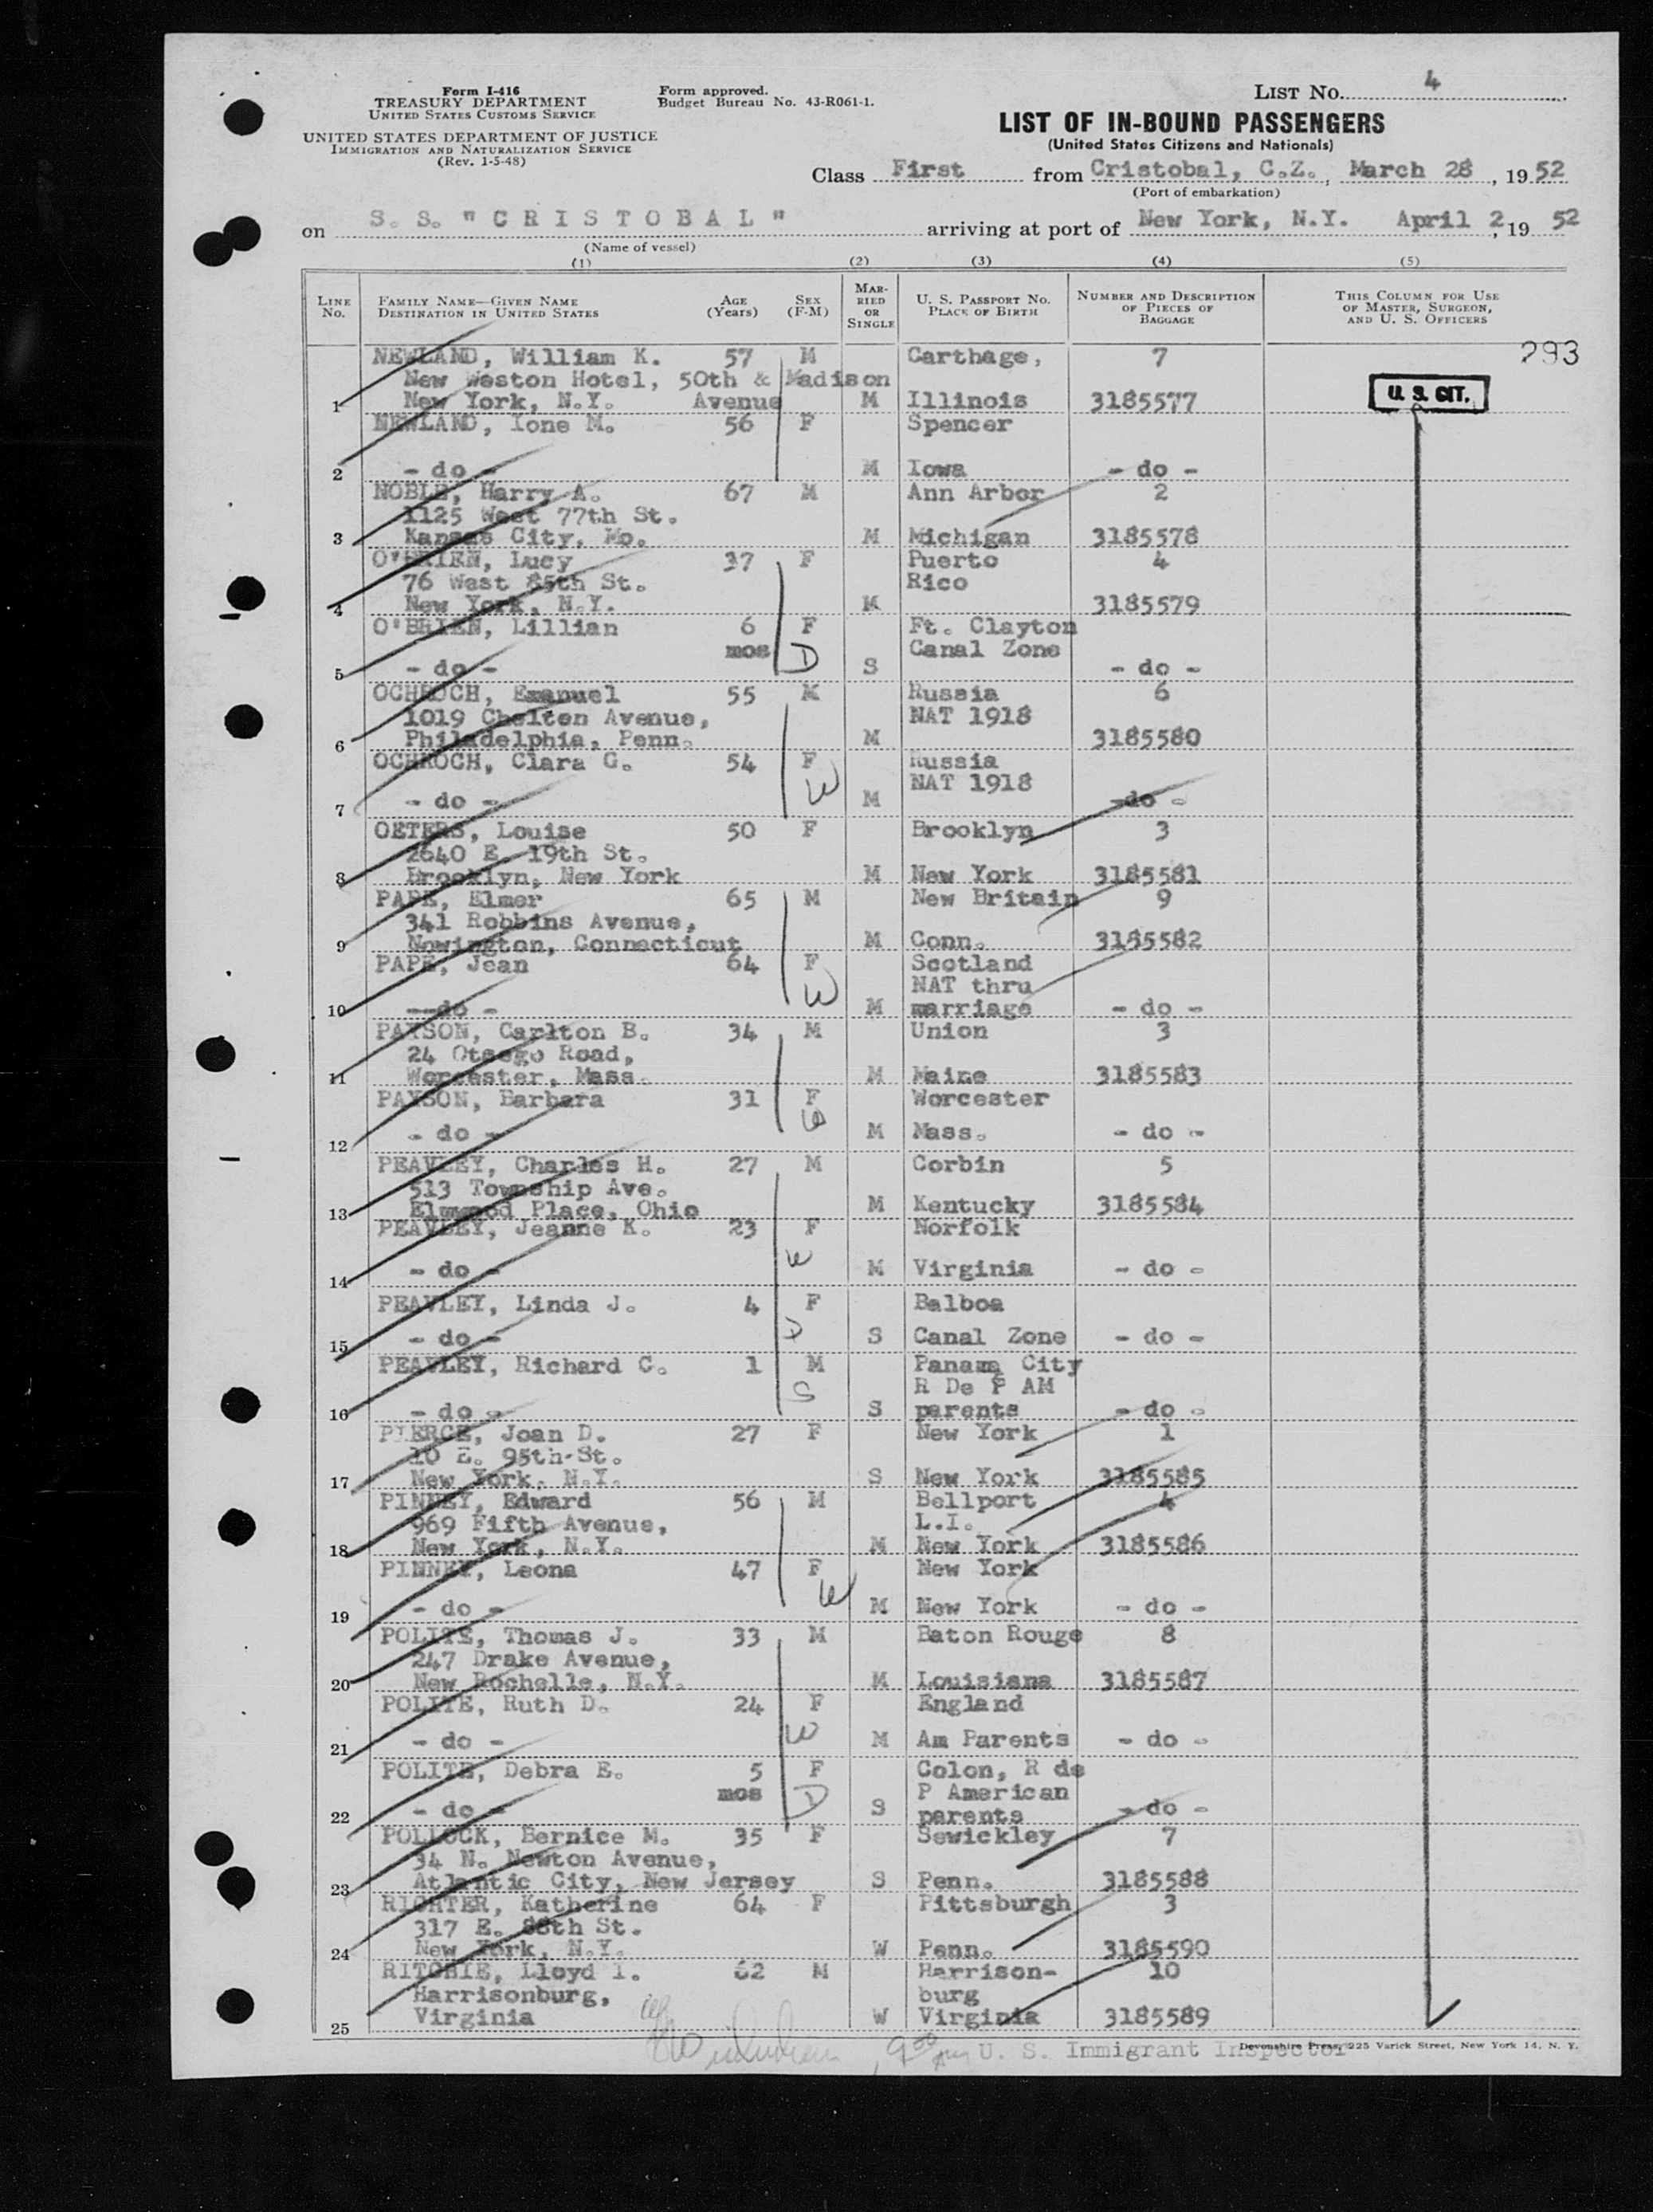 Form I-416
TREASURY DEPARTMENT
UNITED STATES CUSTOMS SERVICE
UNITED STATES DEPARTMENT OF JUSTICE
IMMIGRATION AND NATURALIZATION SERVICE
(Rev. 1-5-48)
Form approved.
Budget Bureau No. 43-R061-1.
LIST NO. 4
LIST OF IN-BOUND PASSENGERS
(United States Citizens and Nationals)
Class First from Cristobal, C.Z., March 28, 1952
(Port of embarkation)
on S. S. "CRISTOBAL" arriving at port of New York, N.Y. April 2, 19 52
(Name of vessel)
(1) (2) (3) (4) (5)
LINE NO. FAMILY NAME—GIVEN NAME DESTINATION IN UNITED STATES AGE (YEARS) SEX (F-M) MARRIED OR SINGLE U. S. PASSPORT NO. PLACE OF BIRTH NUMBER AND DESCRIPTION OF PIECES OF BAGGAGE THIS COLUMN FOR USE OF MASTER, SURGEON, AND U. S. OFFICERS
NEWLAND, William K. 57 M Carthage, 7 293
New Weston Hotel, 50th & Madison U. S. CIT.
1 New York, N.Y. Avenue M Illinois 3185577
NEWLAND, Ione M. 56 F Spencer
2 - do - M Iowa - do -
NOBLE, Harry A. 67 M Ann Arbor 2
1125 West 77th St.
3 Kansas City, Mo. M Michigan 3185578
O'BRIEN, Lucy 37 F Puerto 4
76 West 85th St. Rico
4 New York, N.Y. M 3185579
O'BRIEN, Lillian 6 F Ft. Clayton
mos D Canal Zone
5 - do - S - do -
OCHROCH, Emanuel 55 M Russia 6
1019 Chelten Avenue, NAT 1918
6 Philadelphia, Penn. M 3185580
OCHROCH, Clara G. 54 F Russia
W NAT 1918
7 - do - M -do -
OETERS, Louise 50 F Brooklyn 3
2640 E. 19th St.
8 Brooklyn, New York M New York 3185581
PAPE, Elmer 65 M New Britain 9
341 Robbins Avenue,
9 Newington, Connecticut M Conn. 3185582
PAPE, Jean 64 F Scotland
W NAT thru
10 --do - M marriage - do -
PAYSON, Carlton B. 34 M Union 3
24 Otsego Road,
11 Worcester, Mass. M Maine 3185583
PAYSON, Barbara 31 F Worcester
W
12 - do - M Mass. - do -
PEAVLEY, Charles H. 27 M Corbin 5
513 Township Ave.
13 Elmwood Place, Ohio M Kentucky 3185584
PEAVLEY, Jeanne K. 23 F Norfolk
W
14 - do - M Virginia - do -
PEAVLEY, Linda J. 4 F Balboa
D
15 - do - S Canal Zone - do -
PEAVLEY, Richard C. 1 M Panama City
S R De P AM
16 - do - S parents - do -
PIERCE, Joan D. 27 F New York 1
10 E. 95th St.
17 New York, N.Y. S New York 3185585
PINNEY, Edward 56 M Bellport 4
969 Fifth Avenue, L.I.
18 New York, N.Y. M New York 3185586
PINNEY, Leona 47 F New York
W
19 - do - M New York - do -
POLITE, Thomas J. 33 M Baton Rouge 8
247 Drake Avenue,
20 New Rochelle, N.Y. M Louisiana 3185587
POLITE, Ruth D. 24 F England
W
21 - do - M Am Parents - do -
POLITE, Debra E. 5 F Colon, R de
mos D P American
22 - do - S parents - do -
POLLOCK, Bernice M. 35 F Sewickley 7
34 N. Newton Avenue,
23 Atlantic City, New Jersey S Penn. 3185588
RICHTER, Katherine 64 F Pittsburgh 3
317 E. 88th St.
24 New York, N.Y. W Penn. 3185590
RITCHIE, Lloyd I. 62 M Harrison- 10
Harrisonburg, burg
25 Virginia W Virginia 3185589
U. S. Immigrant Inspector
Devonshire Press, 225 Varick Street, New York 14, N. Y.